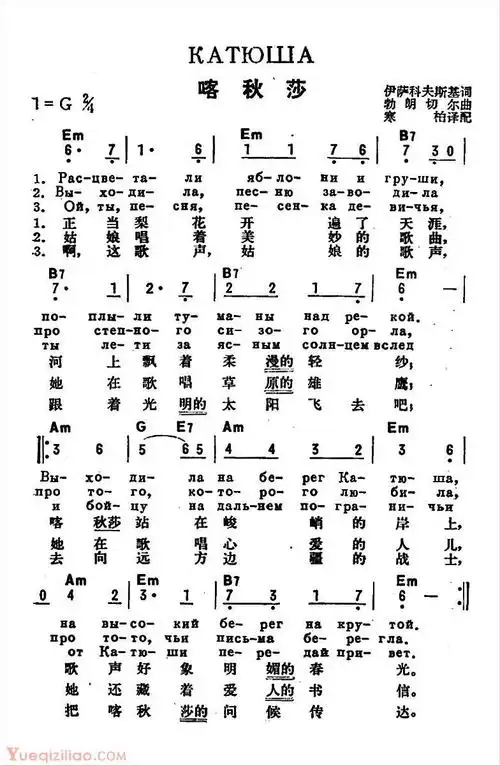 КАТЮША
喀秋莎
1=G 2/4
伊萨科夫斯基词
勃朗切尔曲
寒柏译配
Em Em B7
6· 7 1· 6 1 1 7 6 7 3 0
1. Рас-цве-та-ли яб-ло-ни и гру-ши,
2. Вы-хо-ди-ла, пес-ню за-во-ди-ла
3. Ой, ты, пе-сня, пе-сен-ка де-ви-чья,
1. 正当梨花开遍了天涯,
2. 姑娘唱着美妙的歌曲,
3. 啊,这歌声,姑娘的歌声,
B7 B7 Em
7· 1 2· 7 2 2 1 7 6 —
по-плы-ли ту-ма-ны над ре-кой.
про степ-но-го си-зо-го ор-ла,
ты ле-ти за яс-ным солн-цем вслед
河上飘着柔漫的轻纱;
她在歌唱草原的雄鹰;
跟着光明的太阳飞去吧;
Am G E7 Am Am Em
3 6 5 6 5 4 4 3 2 3 6
Вы-хо-ди-ла на бе-рег Ка-тю-ша,
про то-го, ко-то-ро-го лю-би-ла,
и бой-цу на даль-нем по-гра-ни-чьи
喀秋莎站在峻峭的岸上,
她在歌唱心爱的人儿,
去向远方边疆的战士,
Am Em B7 Em
0 4 2 3· 1 7 3 1 7 6 —
на вы-со-кий бе-рег на кру-той.
про то-го, чьи пись-ма бе-ре-гла.
от Ка-тю-ши пе-ре-дай при-вет.
歌声好象明媚的春光。
她还藏着爱人的书信。
把喀秋莎的问候传达。
Yueqiziliao.com